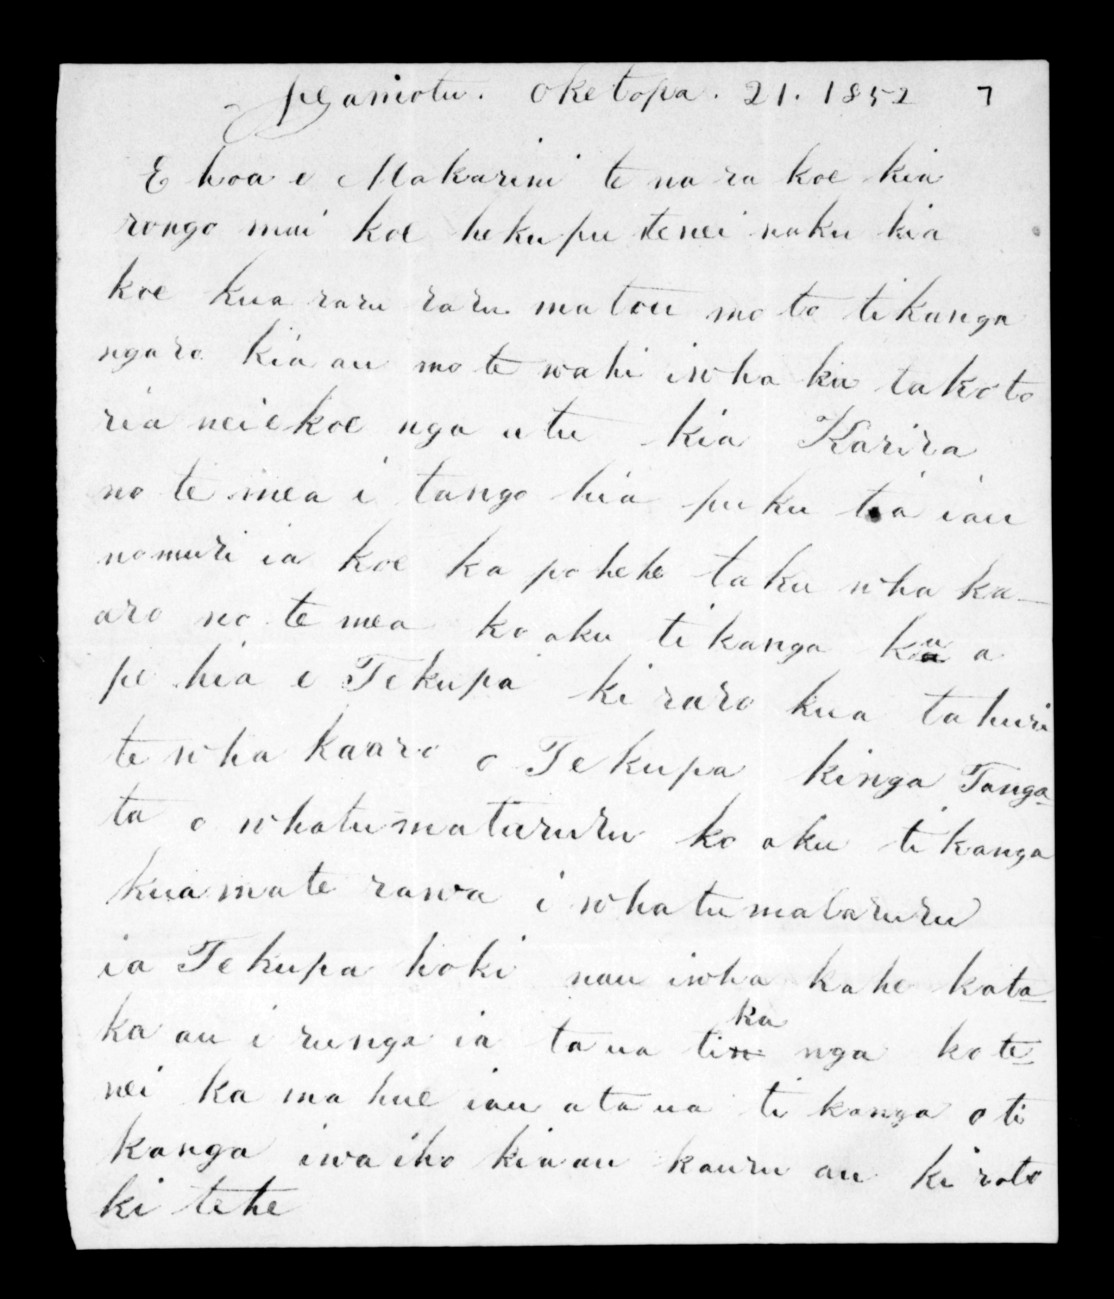 Ngamotu. Oketopa. 21. 1852 7
E hoa e Makarini te na ra koe kia
rongo mai koe heku pu tenei naku kia
koe kua raru raru matou mo to tikanga
ngaro kia au mo te wahi iwha ka takoto
ria neiekoe nga utu kia Karira
no te mea i tango hia puku tia iau
nomuri ia koe ka po hehe taku wha ka-
aro no te mea ko aku tikanga kua a
pe hia e Tekupa ki raro kua tahuri
te wha kaaro o Te kupa kinga Tanga-
ta o whatu-mataruru ko aku ti kanga
kua mate rawa i whatumataruru
ia Tekupa hoki nau iwha kahe kata-
ka au i runga ia taua tika nga ko te-
nei ka ma hue iau ataua ti kanga o ti
kanga iwaiho kiaau kauru au ki roto
ki tehe